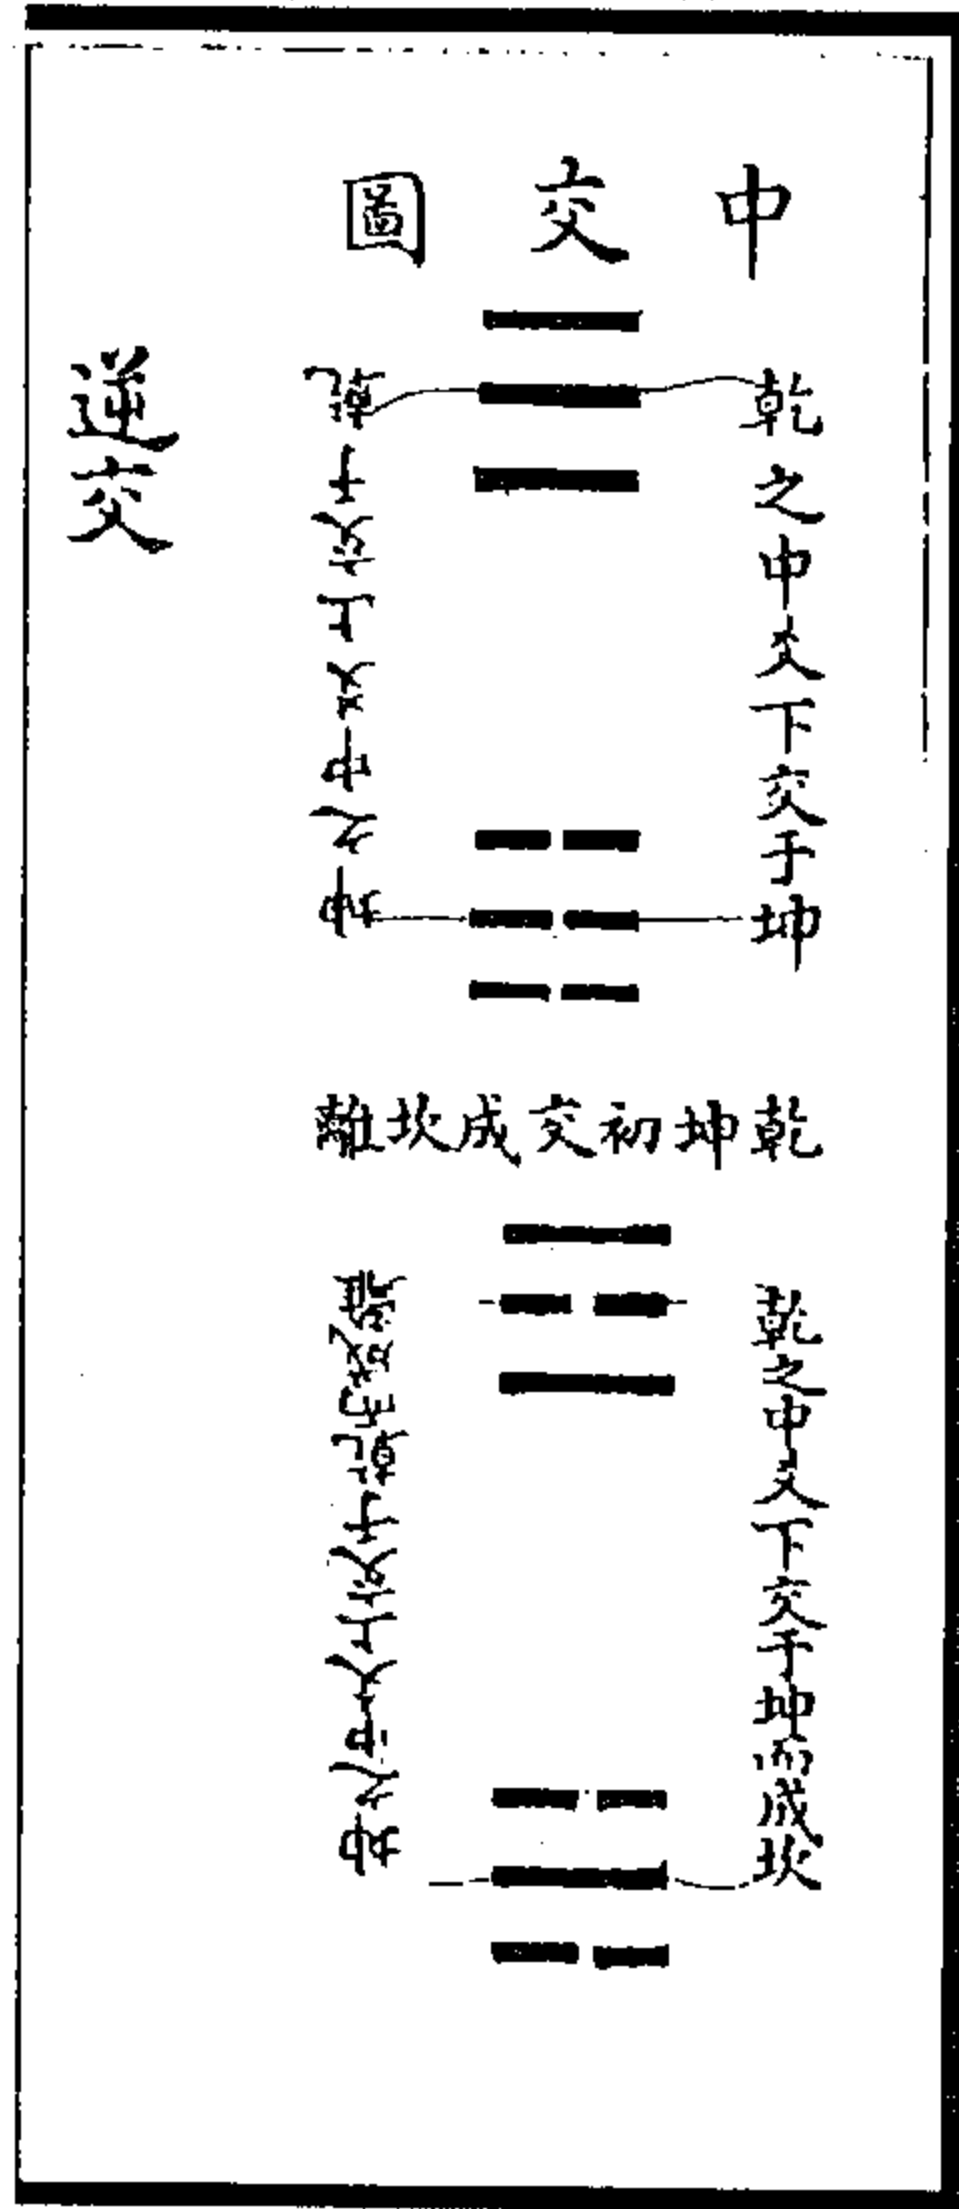 中交圖
乾之中爻下交于坤
坤之中爻上交于乾
逆交
乾坤初交成坎離
乾之中爻下交于坤而成坎
坤之中爻上交于乾而成離